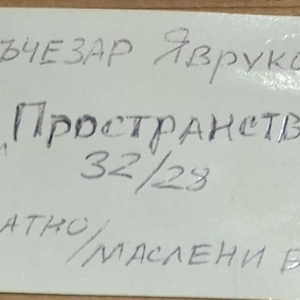 ЪЧЕЗАР ЯВРУКО
ПРОСТРАНСТВ
32/28
АТНО/МАСЛЕНИ Б